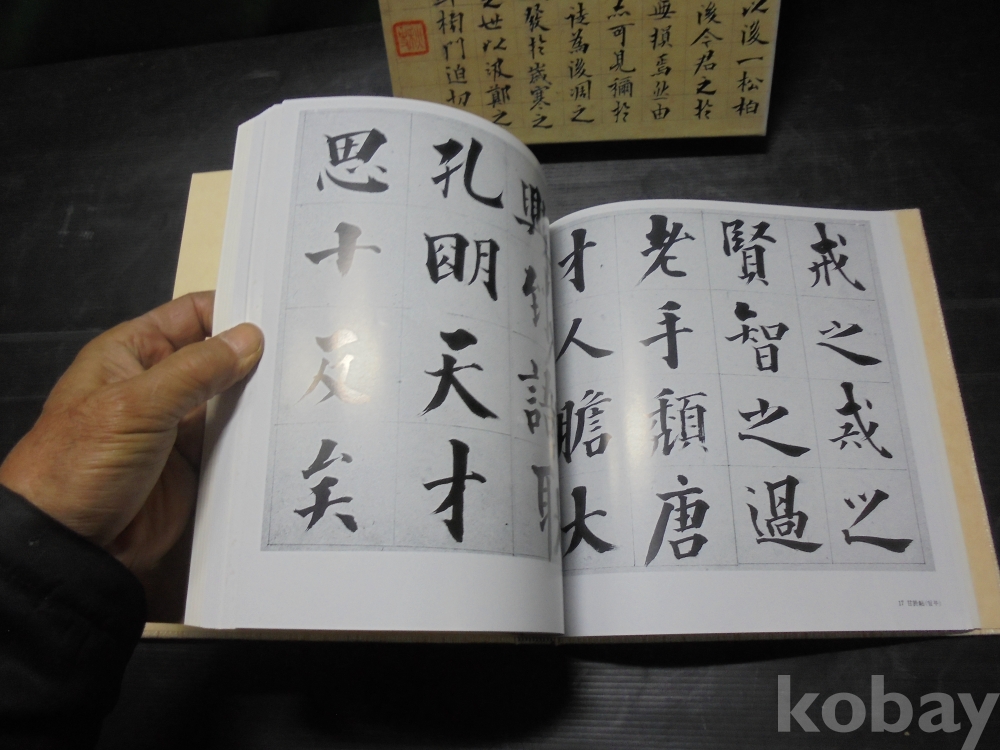 以後一松柏
後今君之於
無損焉然由
亦可見稱於
徒為後凋之
發於歲寒之
之世以汲鄭之
榜門迫切
戒之戒之
賢智之過
老手頹唐
才人膽大
興到語
孔明天才
思十反矣
kobay